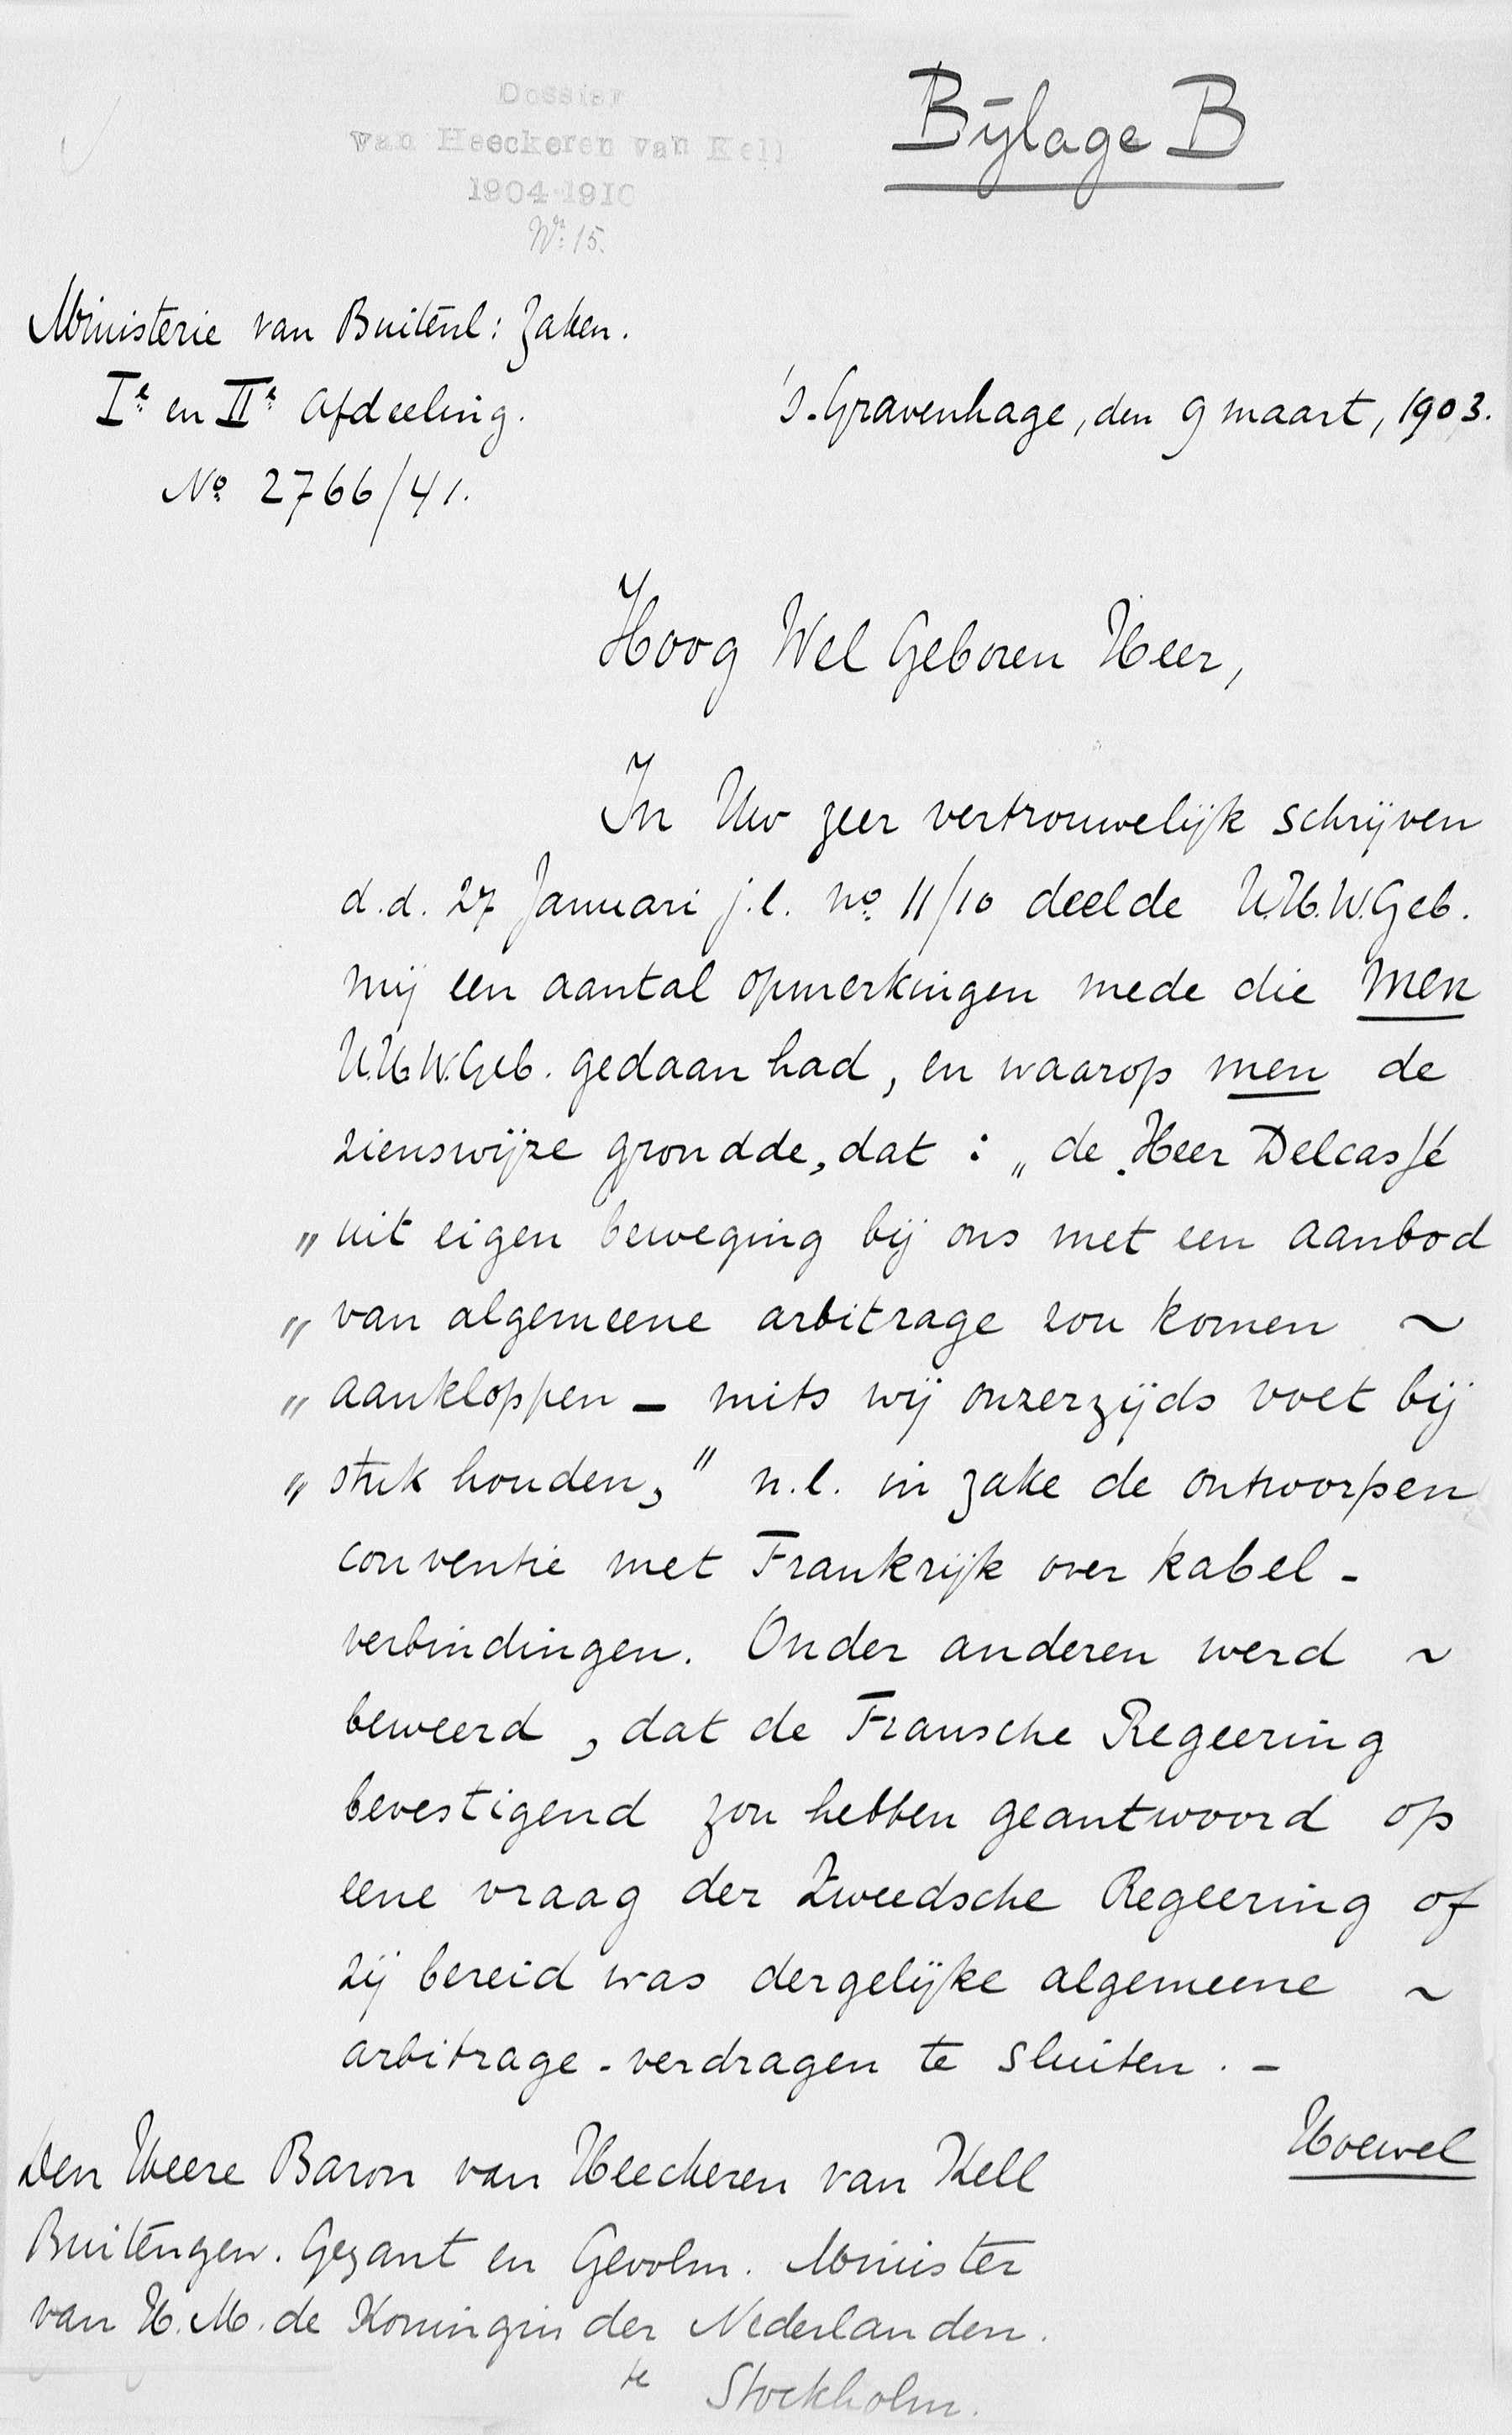 Dossier
van Heeckeren van Kell
1904-1910
No: 15.
Bijlage B
Ministerie van Buitenl: Zaken.
Ie en IIe Afdeeling.
No 2766/41.
's-Gravenhage, den 9 maart, 1903.
Hoog Wel Geboren Heer,
In Uw zeer vertrouwelijk schrijven
d.d. 27 Januari j.l. no 11/10 deelde U.H.W.Geb.
mij een aantal opmerkingen mede die men
U.H.W.Geb. gedaan had, en waarop men de
zienswijze grondde, dat : „ de Heer Delcassé
„ uit eigen beweging bij ons met een aanbod
„ van algemeene arbitrage zou komen ~
„ aankloppen — mits wij onzerzijds voet bij
„ stuk houden, " n.l. in zake de ontworpen
conventie met Frankrijk over kabel-
verbindingen. Onder anderen werd ~
beweerd, dat de Fransche Regeering
bevestigend zou hebben geantwoord op
eene vraag der Zweedsche Regeering of
zij bereid was dergelijke algemeene ~
arbitrage-verdragen te sluiten. -
Hoewel
Den Heere Baron van Heeckeren van Kell
Buitengew. Gezant en Gevolm. Minister
van H.M. de Koningin der Nederlanden.
te Stockholm.